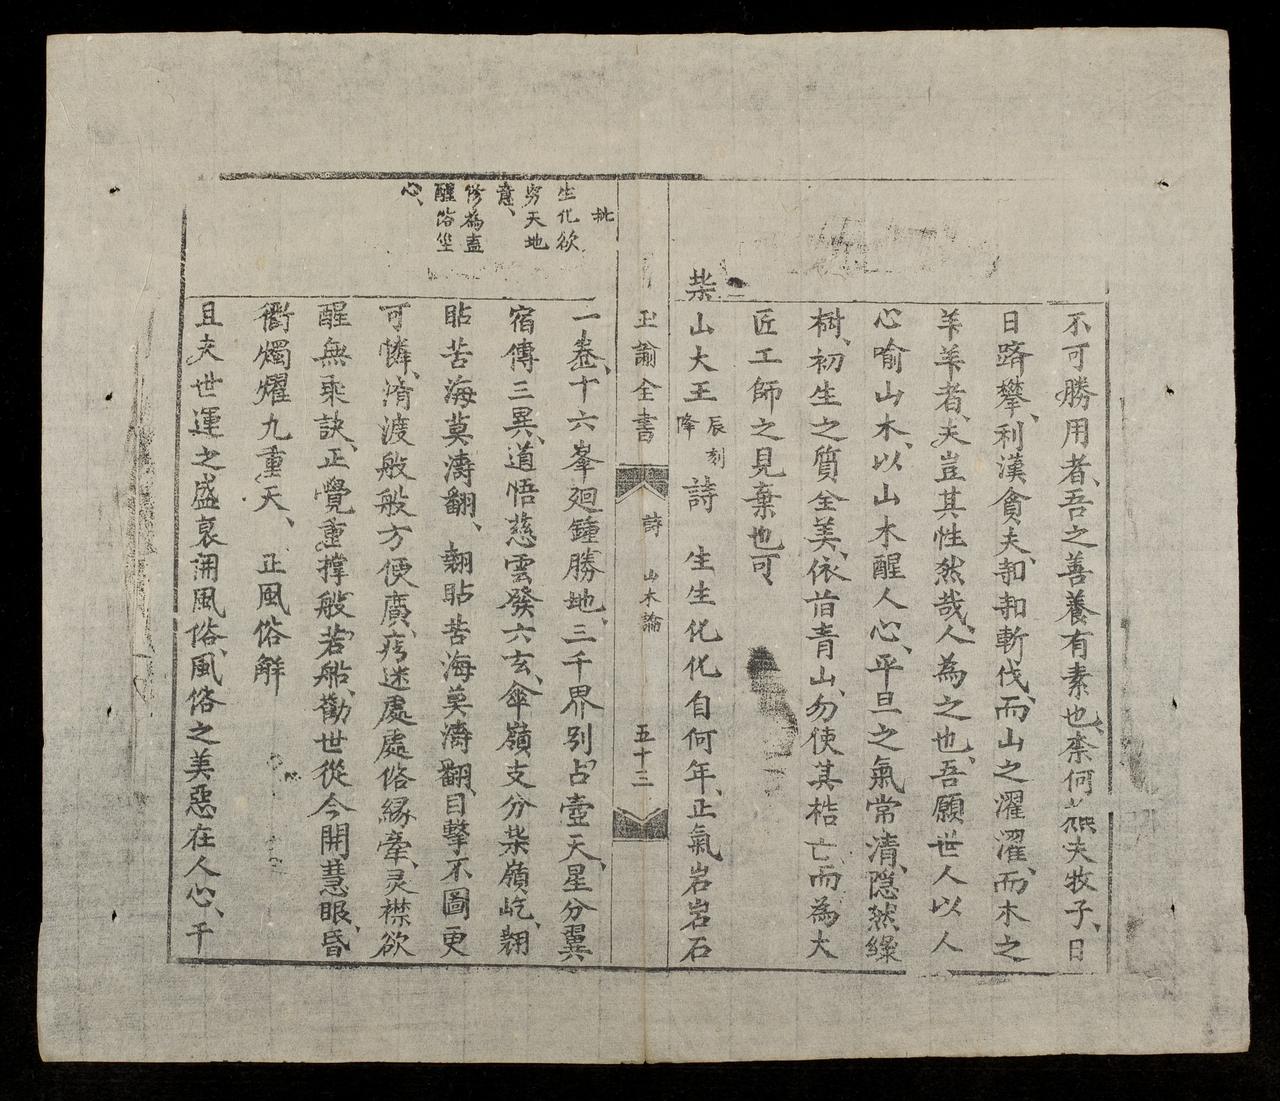 不可勝用者、吾之善養有素也、柰何蕉夫牧子、日
日躋攀、利漢貪夫、刦刦斬伐、而山之濯濯、而木之
芉芉者、夫豈其性然哉、人為之也、吾願世人以人
心喻山木、以山木醒人心、平旦之氣常清、隠然緑
樹、初生之質全美、依旹青山、勿使其梏亡、而為大
匠工師之見棄也可
柴山大王 辰刻降 詩 生生化化自何年、正氣岩岩石
正諭全書 詩 山木論 五十三
批
生化欲
穷天地
意、
修為盍
醒俗坐
心、
一卷、十六峯廻鍾勝地、三千界別占壺天、星分翼
宿傳三異、道悟慈雲發六玄、傘嶺支分柴嶺屹、翹
跕苦海莫濤翻、翹跕苦海莫濤翻、目擊不圖更
可憐、濟渡般般方便廣、痴迷處處俗緣牽、灵襟欲
醒無乘訣、正覺重撑般若船、勸世從今開慧眼、昏
衢燭燿九重天、 正風俗解
且夫世運之盛衰関風俗、風俗之美惡在人心、千